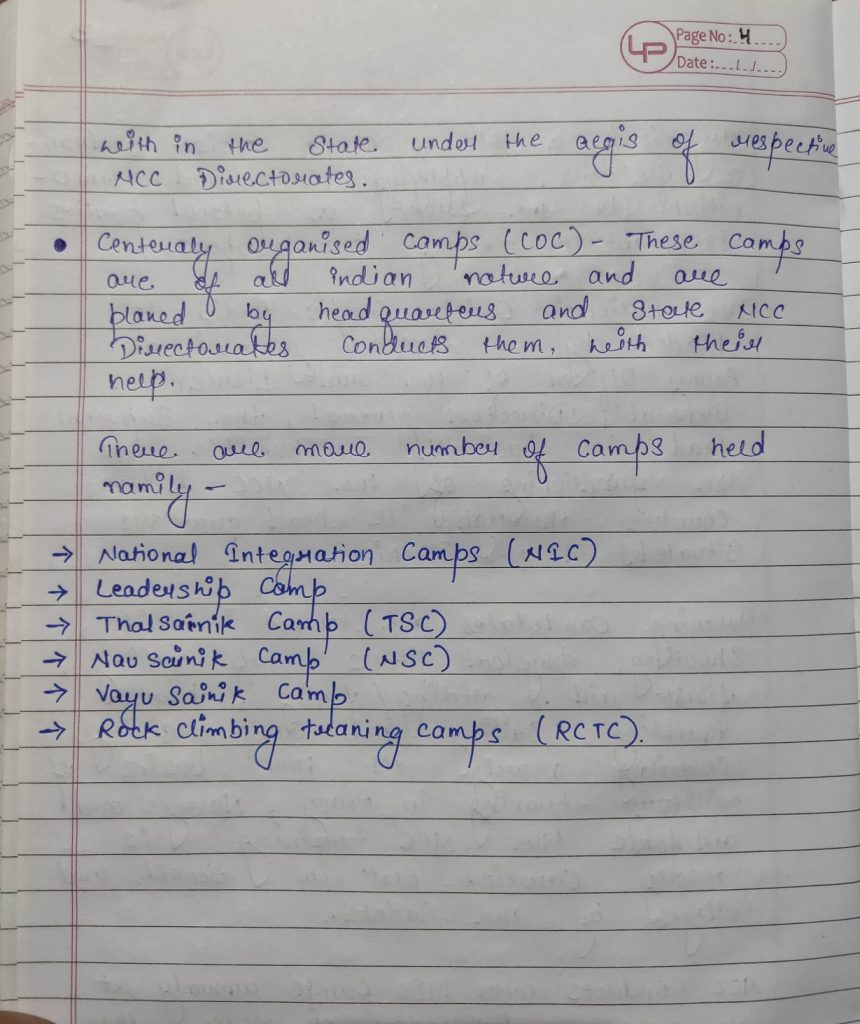 LP
Page No: 4
Date: / /
with in the State under the aegis of respective
NCC Directorates.
• Centeraly organised Camps (COC) - These Camps
are of all indian nature and are
planed by headquarters and State NCC
Directorates Conducts them, with their
help.
There are more number of Camps held
namily -
→ National Integration Camps (NIC)
→ Leadership Camp
→ Thal sainik Camp (TSC)
→ Nau sainik Camp (NSC)
→ Vayu Sainik Camp
→ Rock Climbing traning camps (RCTC).